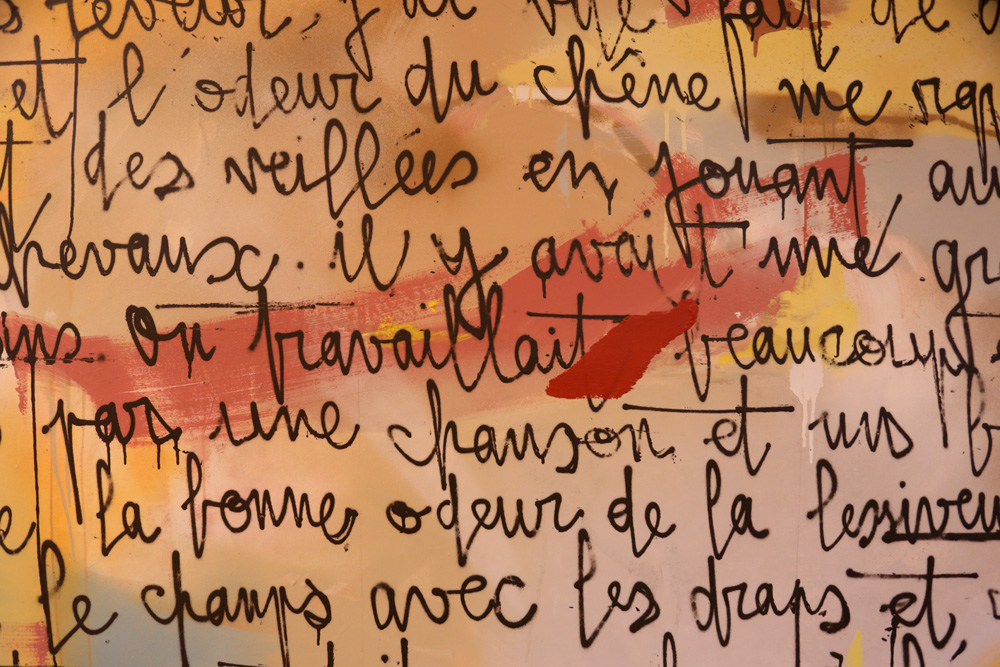 et l'odeur du chêne me rap
des veillées en jouant au
chevaux. il y avait une gr
ins. On travaillait beaucoup
par une chanson et un b
la bonne odeur de la lessiveu
le champs avec les draps et